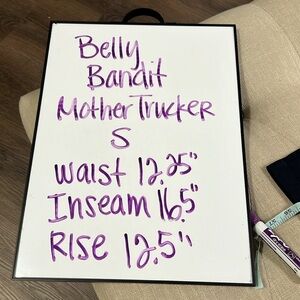 Belly
Bandit
Mother Trucker
S
waist 12.25"
Inseam 16.5"
Rise 12.5"